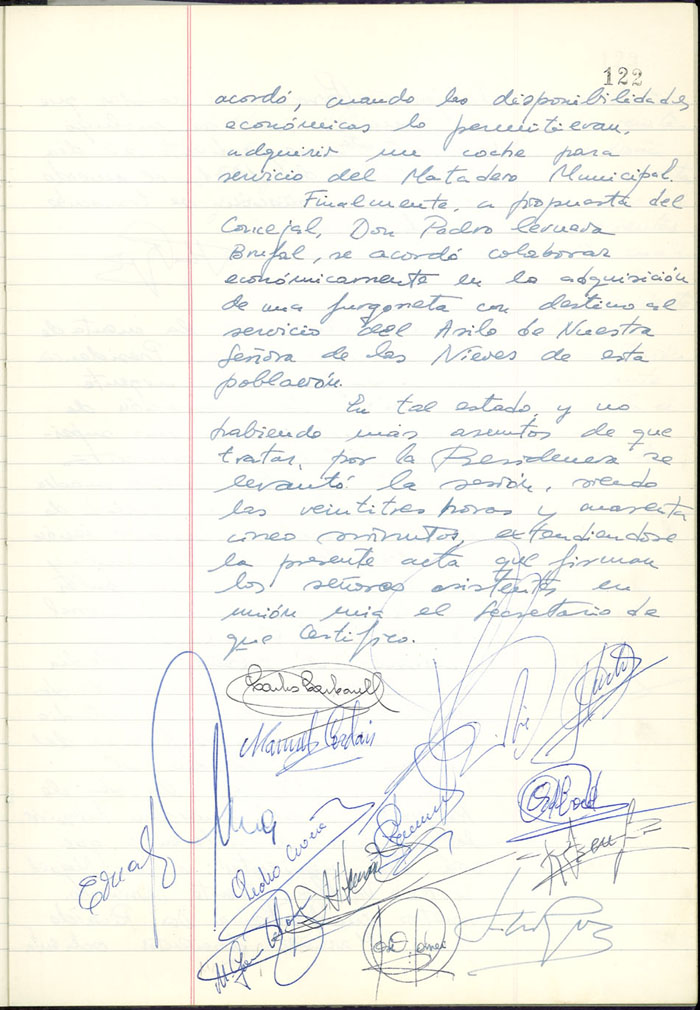 122
acordó, cuando las disponibilidades
económicas lo permitieran,
adquirir un coche para
servicio del Matadero Municipal.
Finalmente, a propuesta del
Concejal, Don Pedro
Brufal, se acordó colaborar
económicamente en la adquisición
de una furgoneta con destino al
servicio del Asilo de Nuestra
Señora de las Nieves de esta
población.
En tal estado, y no
habiendo más asuntos de que
tratar, por la Presidencia se
levantó la sesión, siendo
las veintitres horas y cuarenta
cinco minutos, extendiendose
la presente acta que firman
los señores asistentes en
unión mia el Secretario de
que Certifico.
Manuel
Pedro